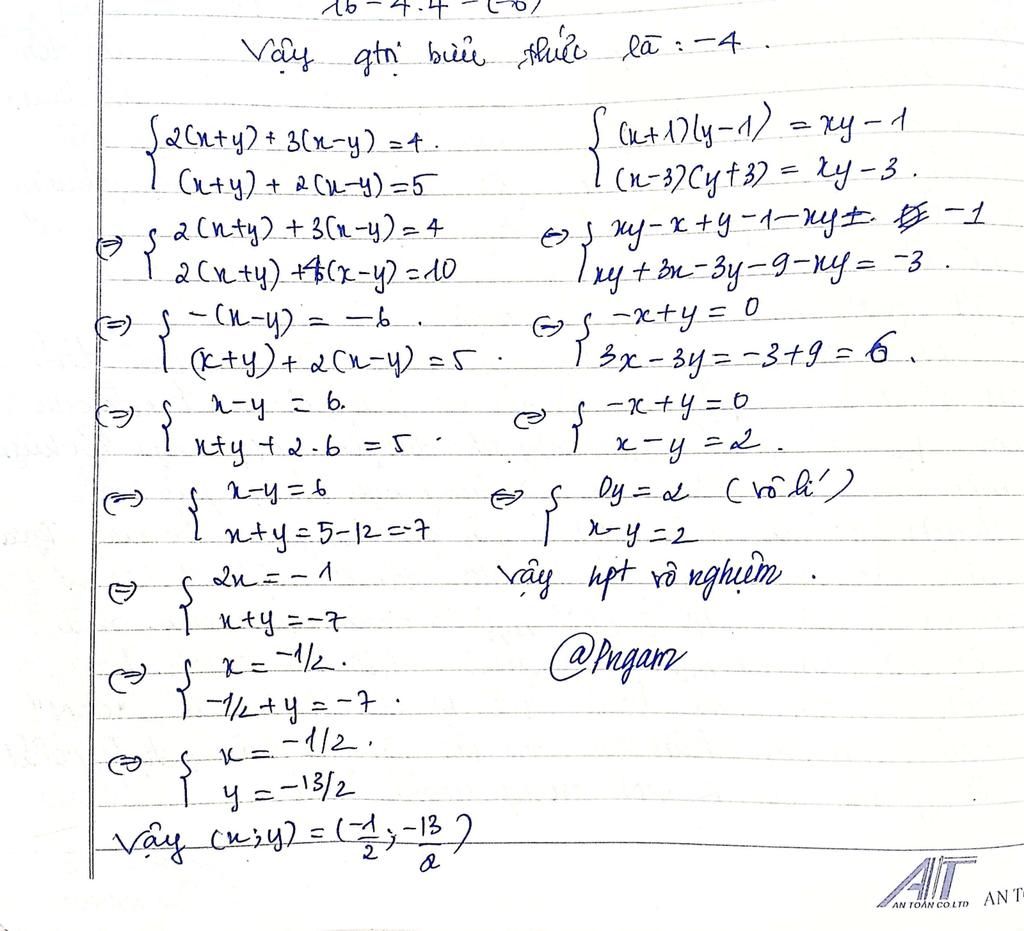 16 - 4.4 - (-6)
Vậy gtrị biểu thức là : -4 .
{ 2(x+y) + 3(x-y) = 4 .
(x+y) + 2(x-y) = 5
⇔ { 2(x+y) + 3(x-y) = 4
2(x+y) + 4(x-y) = 10
⇔ { -(x-y) = -6 .
(x+y) + 2(x-y) = 5 .
⇔ { x-y = 6.
x+y + 2.6 = 5 .
⇔ { x-y = 6
x+y = 5-12 = -7
⇔ { 2x = -1
x+y = -7
⇔ { x = -1/2 .
-1/2 + y = -7 .
⇔ { x = -1/2 .
y = -13/2
Vậy (x;y) = (-1/2 ; -13/2)
{ (x+1)(y-1) = xy - 1
(x-3)(y+3) = xy - 3 .
⇔ { xy - x + y - 1 - xy = -1
xy + 3x - 3y - 9 - xy = -3 .
⇔ { -x + y = 0
3x - 3y = -3 + 9 = 6 .
⇔ { -x + y = 0
x - y = 2 .
⇔ { 0y = 2 (vô lí)
x-y = 2
Vậy hpt vô nghiệm .
@Pngam
AT
AN TOÀN CO.LTD AN